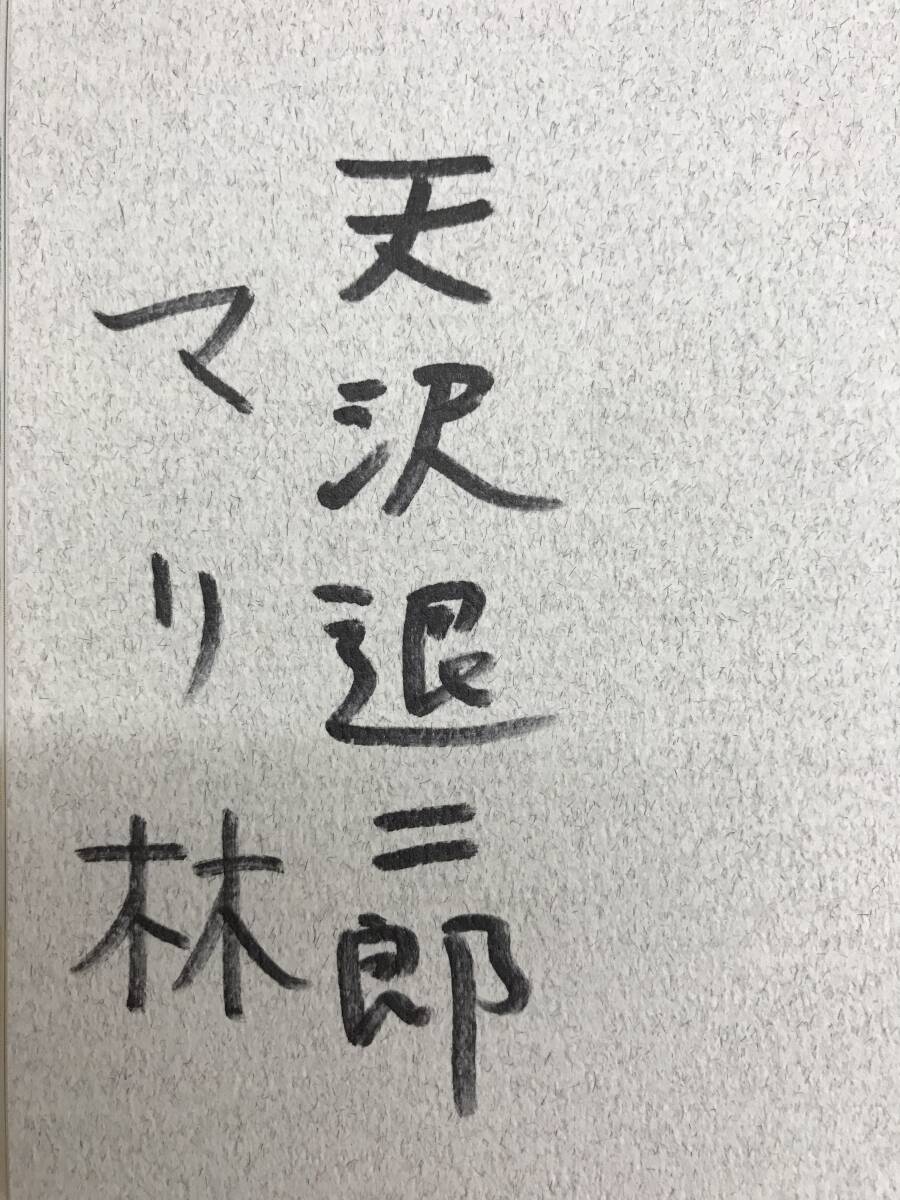 天沢退二郎
マリ林